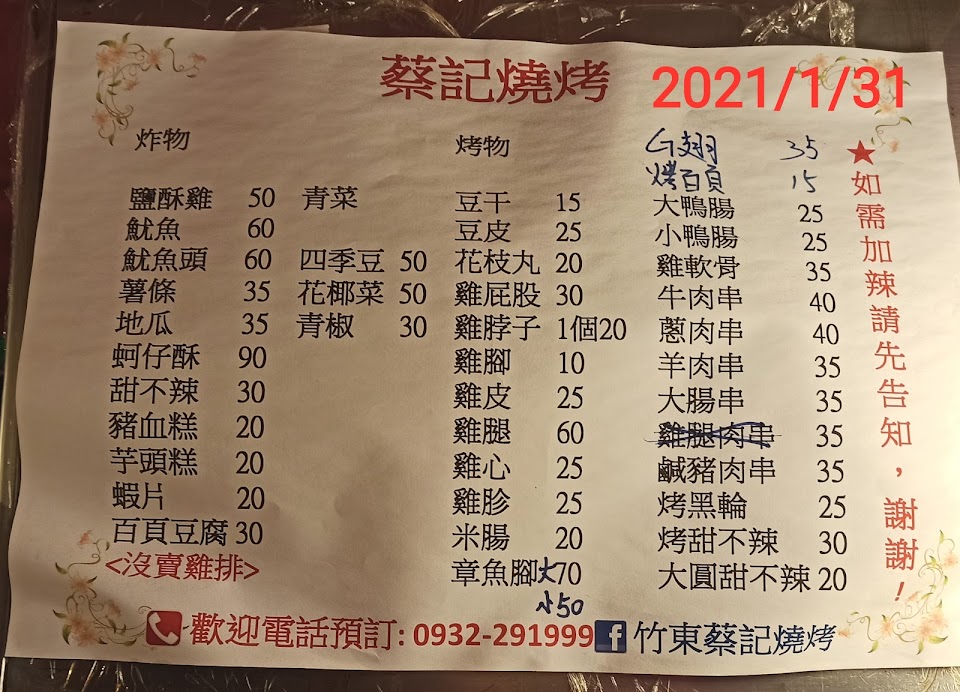 蔡記燒烤
2021/1/31
炸物
鹽酥雞 50
魷魚 60
魷魚頭 60
薯條 35
地瓜 35
蚵仔酥 90
甜不辣 30
豬血糕 20
芋頭糕 20
蝦片 20
百頁豆腐 30
<沒賣雞排>
青菜
四季豆 50
花椰菜 50
青椒 30
烤物
豆干 15
豆皮 25
花枝丸 20
雞屁股 30
雞脖子 1個20
雞腳 10
雞皮 25
雞腿 60
雞心 25
雞胗 25
米腸 20
章魚腳大70
小50
G翅 35
烤百頁 15
大鴨腸 25
小鴨腸 25
雞軟骨 35
牛肉串 40
蔥肉串 40
羊肉串 35
大腸串 35
雞腿肉串 35
鹹豬肉串 35
烤黑輪 25
烤甜不辣 30
大圓甜不辣 20
★如需加辣請先告知，謝謝！
歡迎電話預訂: 0932-291999 f 竹東蔡記燒烤